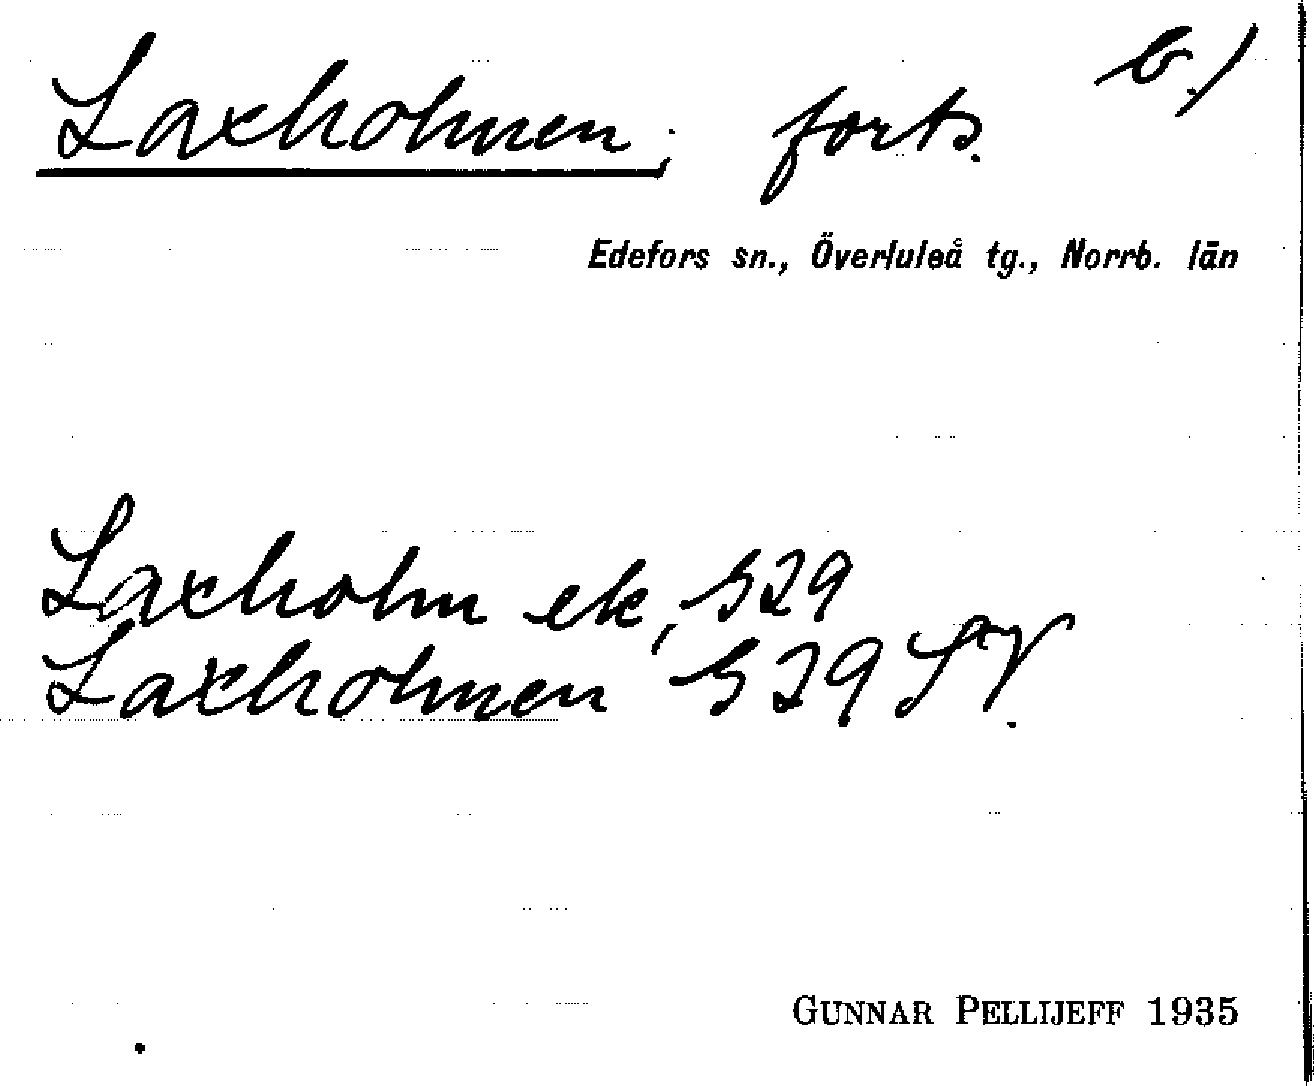 Laxholmen; forts. b./
Edefors sn., Överluleå tg., Norrb. län
Laxholm ek, 529
Laxholmen 529 SV.
GUNNAR PELLIJEFF 1935